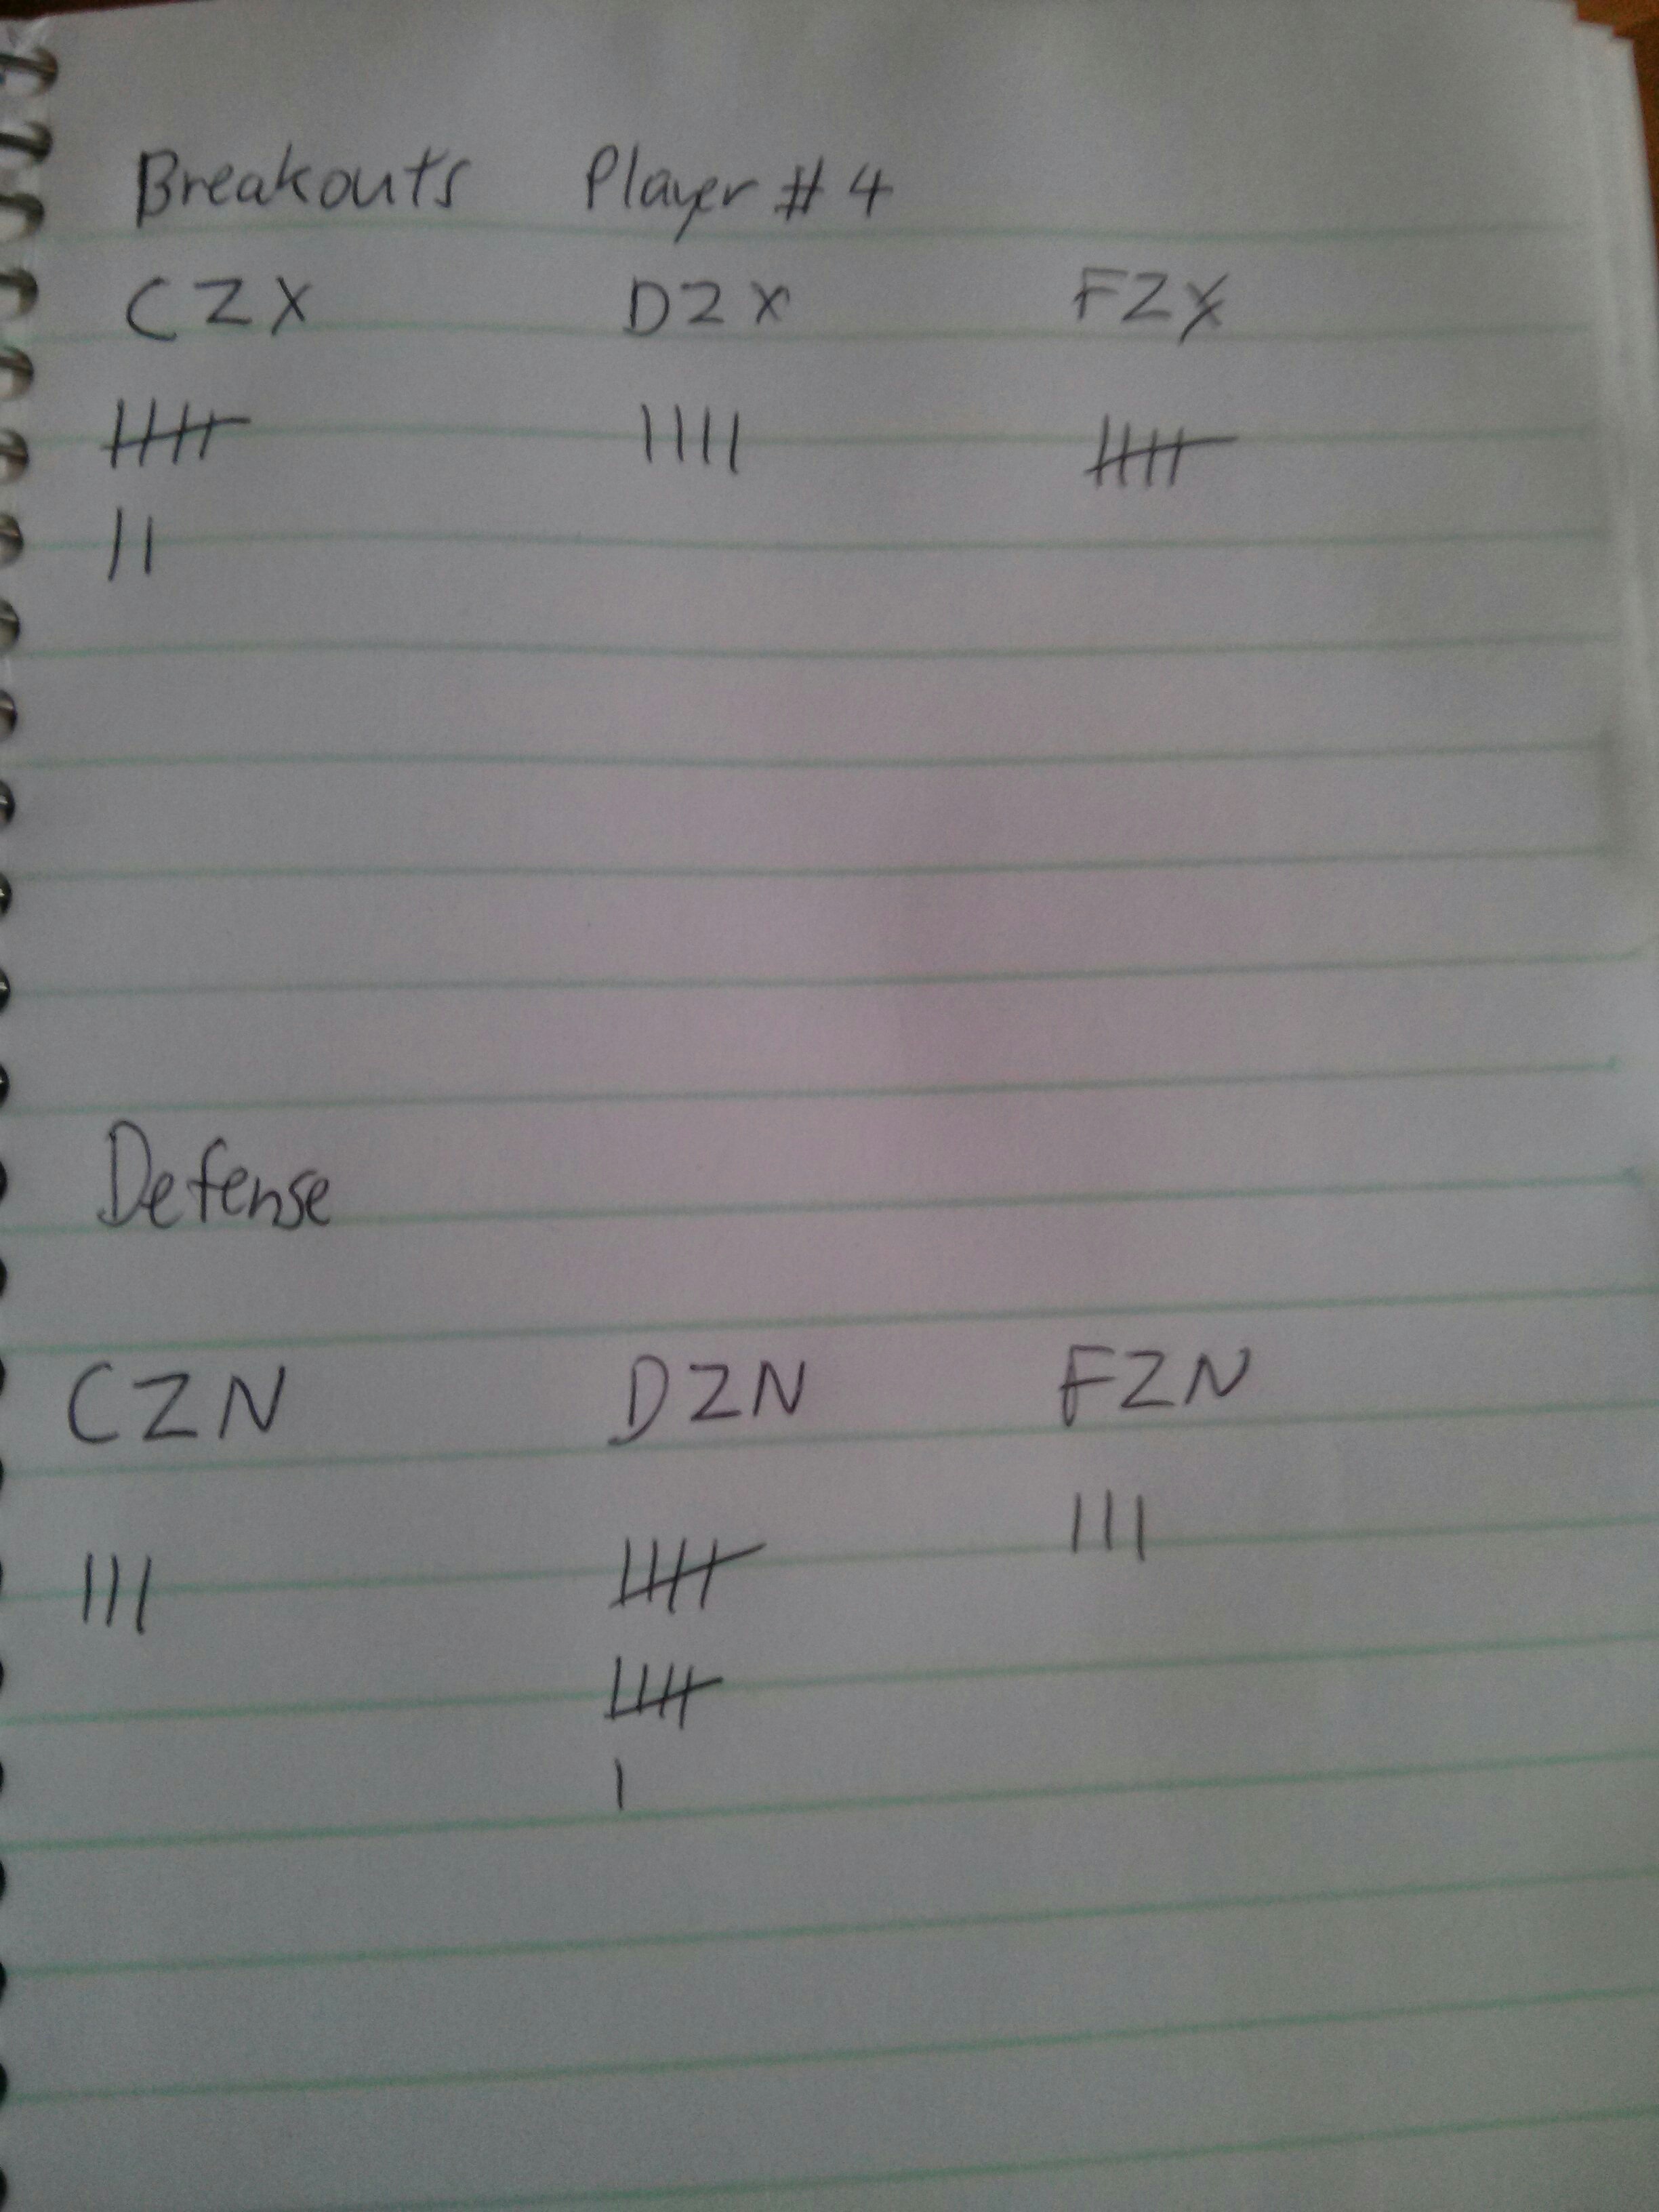 Breakouts Player # 4
CZX DZX FZX
|||| ||||  ||||
||
Defense
CZN DZN FZN
||| |||| |||
||||
|